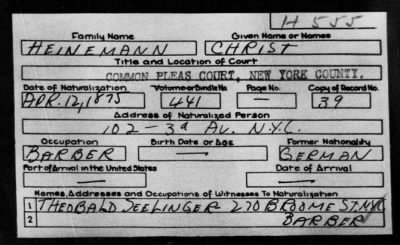 H 555
Family Name Given Name or Names
HEINEMANN CHRIST
Title and Location of Court
COMMON PLEAS COURT, NEW YORK COUNTY.
Date of Naturalization Volume or Bundle No. Page No. Copy of Record No.
APR. 12, 1875 441 — 39
Address of Naturalized Person
102 - 3d AV. N.Y.C.
Occupation Birth Date or Age Former Nationality
BARBER — GERMAN
Port of Arrival in the United States Date of Arrival
— —
Names, Addresses and Occupations of Witnesses To Naturalization
1 THEOBALD SEELINGER 270 BROOME ST. NYC
2 BARBER